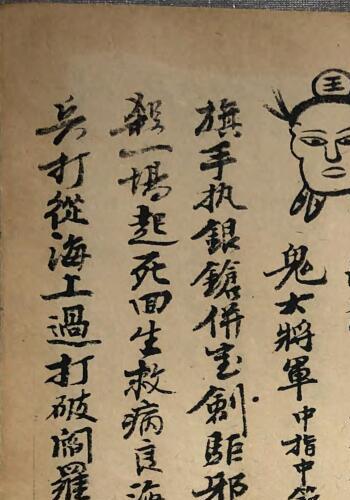 王
鬼大將軍中指中
旗手执銀鎗併宝劍駈邪
殺一場起死回生救病良海
兵打從海上過打破閻羅